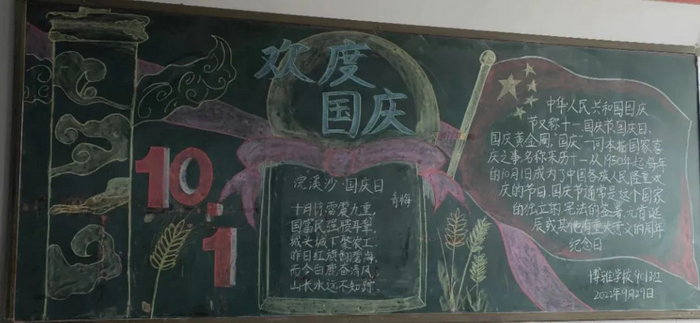 欢度
国庆
10.1
浣溪沙·国庆日
十月
国富民强
城头城下聚农工
昨日红旗
而今白鹿奋清风
山长水远不知
中华人民共和国国庆
节又称十一、国庆节国庆日、
国庆黄金周、国庆一词本指国家喜
庆之事名称来历十一从1950年起每年
的10月1日成为了中国各族人民隆重欢
庆的节日，国庆节通常是这个国家
的独立的宪法的签署元首诞
辰或其他有重大意义的周年
纪念日
博雅学校
2022年9月29日